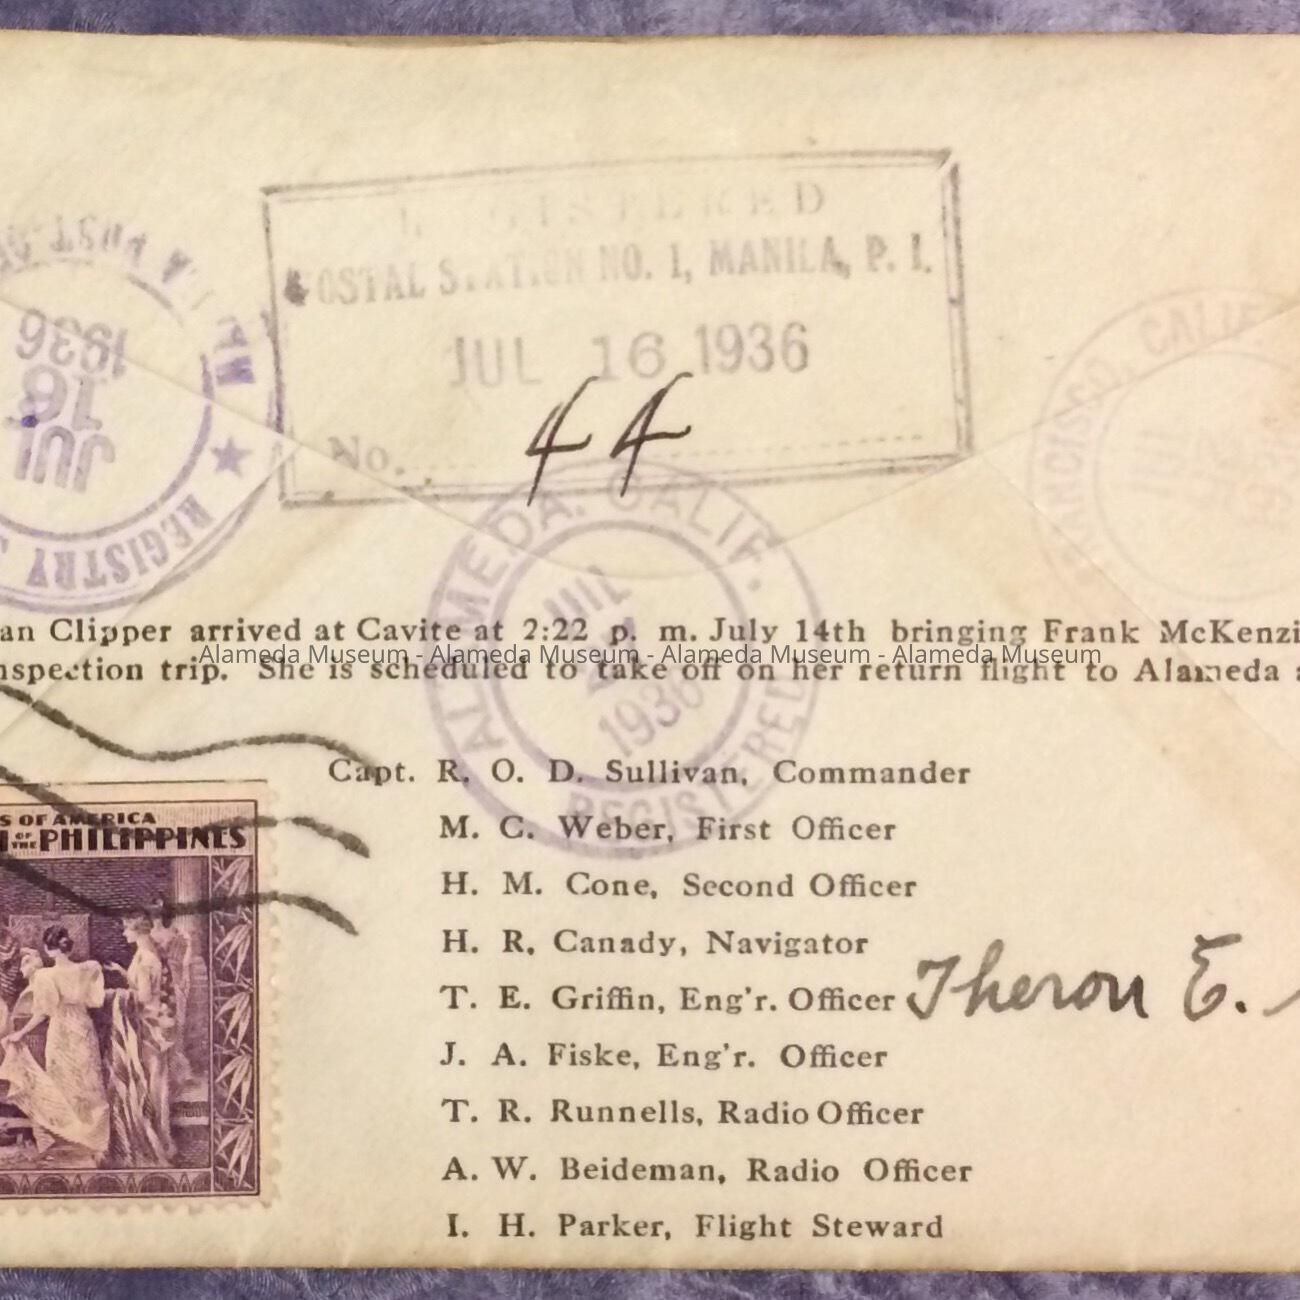 REGISTERED
POSTAL STATION NO. 1, MANILA, P. I.
JUL 16 1936
No. 44
JUL
16
1936
REGISTRY
CALIF.
JUL
ALAMEDA. CALIF.
JUL
1936
REGISTERED
an Clipper arrived at Cavite at 2:22 p. m. July 14th bringing Frank McKenzi
nspection trip. She is scheduled to take off on her return flight to Alameda a
Alameda Museum - Alameda Museum - Alameda Museum - Alameda Museum
Capt. R. O. D. Sullivan, Commander
M. C. Weber, First Officer
H. M. Cone, Second Officer
H. R. Canady, Navigator
T. E. Griffin, Eng'r. Officer Theron E.
J. A. Fiske, Eng'r. Officer
T. R. Runnells, Radio Officer
A. W. Beideman, Radio Officer
I. H. Parker, Flight Steward
S OF AMERICA
OF THE PHILIPPINES